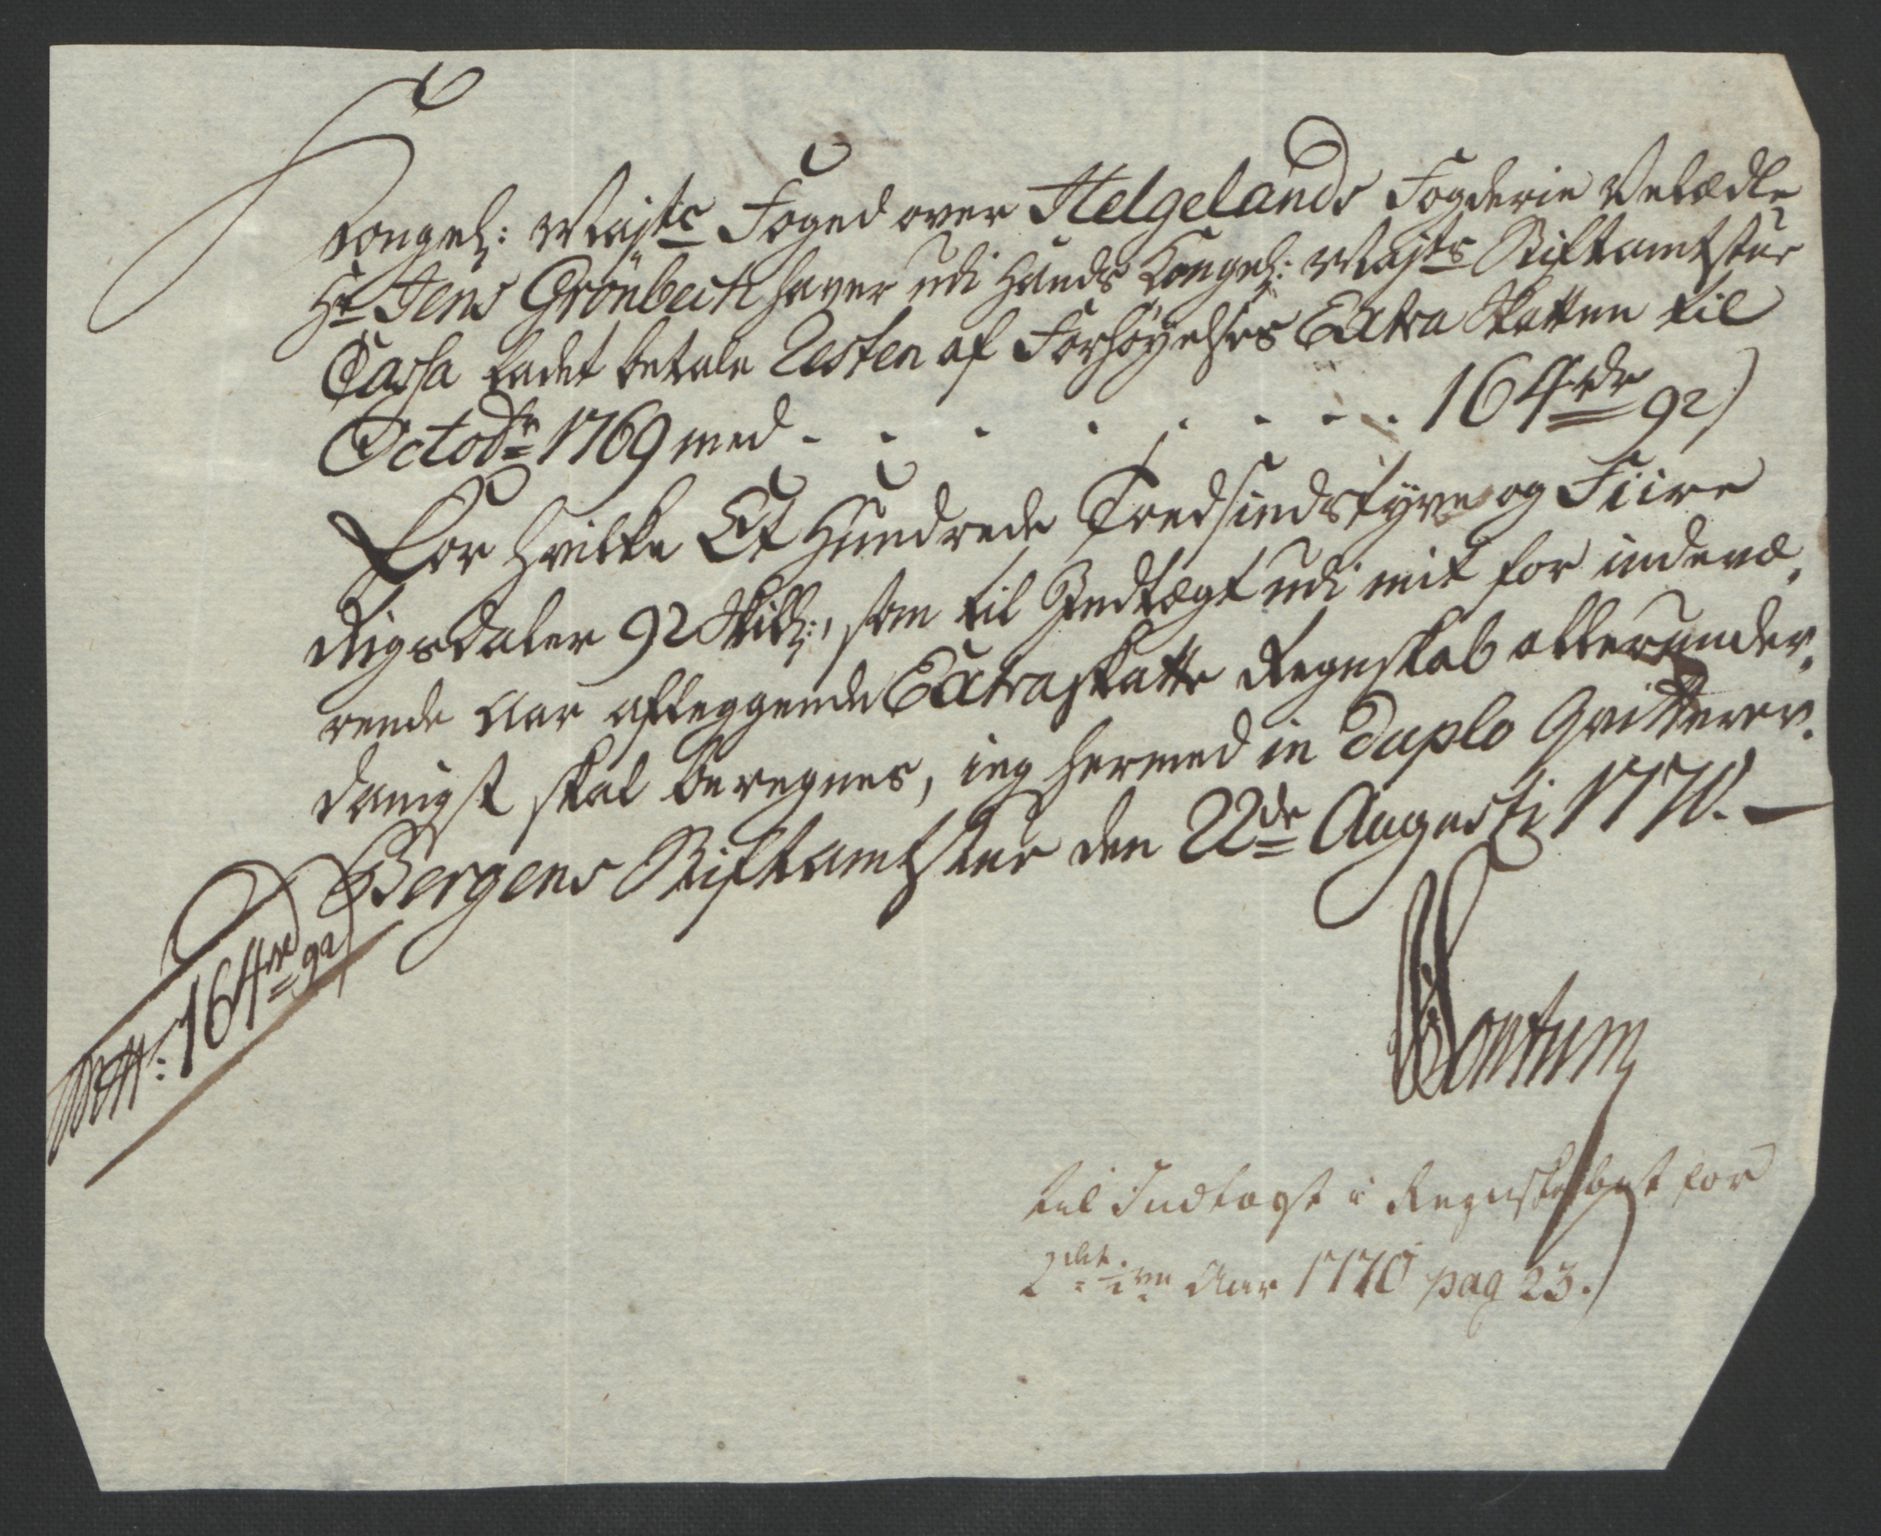 Kongel: Maj:ts Foged over Helgelands Fogderie Velædle
Hr Jens Grönbech haver udi Hands Kongel: Maj:ts Stiftamtstue
Cassa ladet betale Resten af Forhøyelses Extra Skatten til
Octobr 1769 med . . . . . . . . 164 rdr 92)
For hvilke Et Hundrede Tredsindstyve og Fiire
Rigsdaler 92 Skill:, som til Indtægt udi mit for indevæ,
rende Aar aflæggende Extraskatte Regnskab allerunder,
danigst skal beregnes, ieg hermed in Duplo Qvitterer.
Bergens Stiftamtstue den 22de Augusti 1770. —
164 rdr 92)
til Indtægt i Regnskabet for
2det Aar 1770 pag 23.